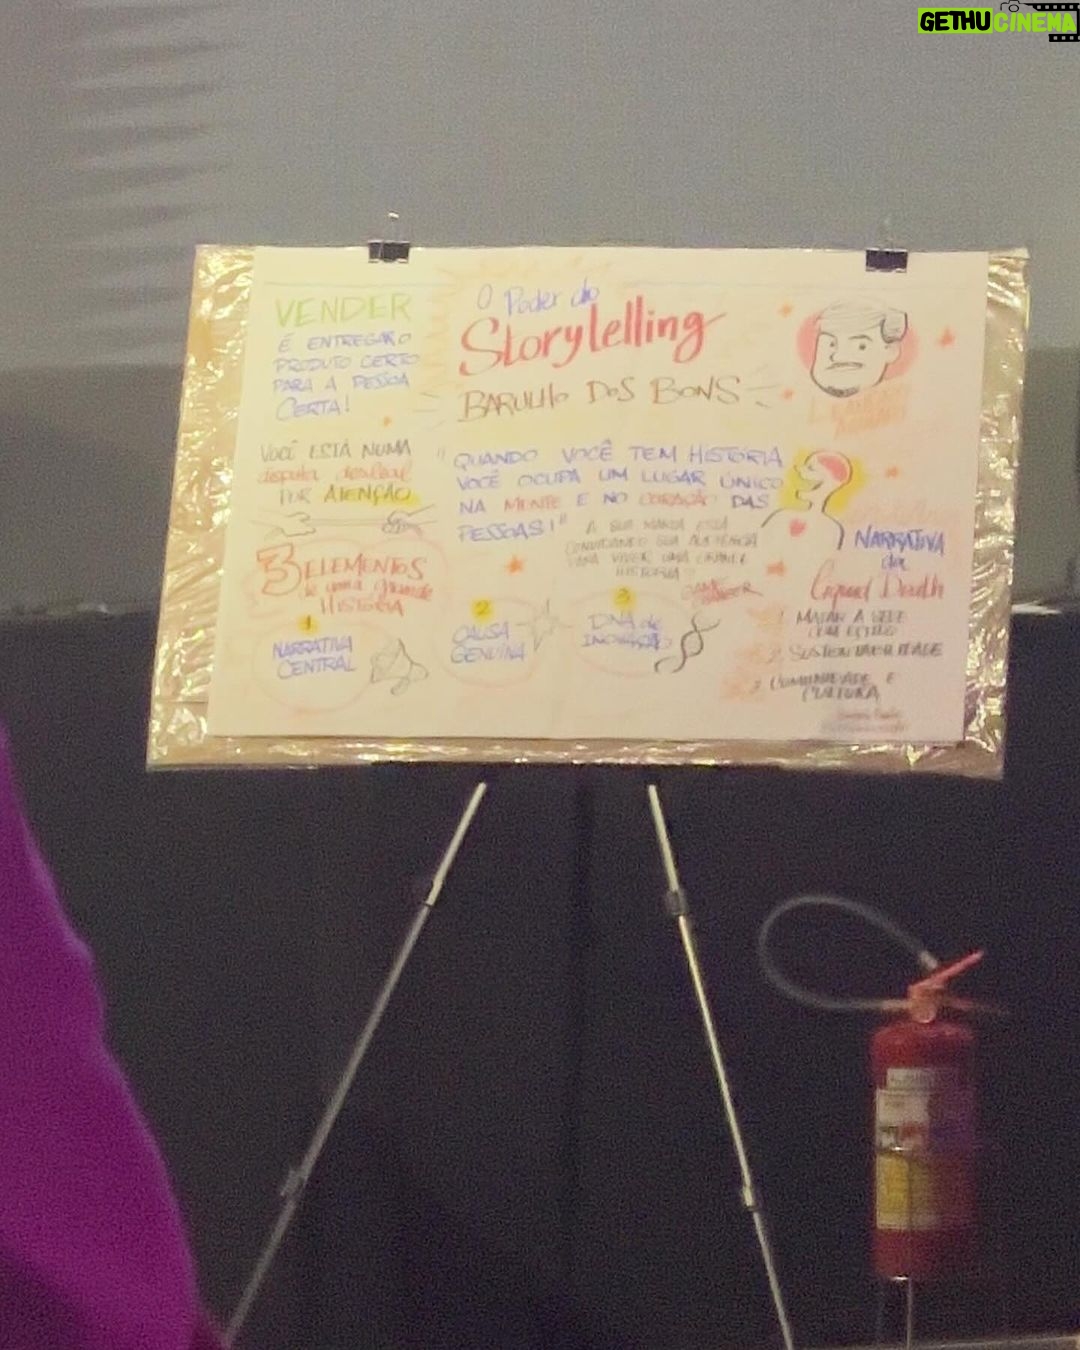 GETHUCINEMA
VENDER
É ENTREGAR O
PRODUTO CERTO
PARA A PESSOA
CERTA!
VOCÊ ESTÁ NUMA
disputa desleal
POR ATENÇÃO
3 ELEMENTOS
de uma grande
HISTÓRIA
1
NARRATIVA
CENTRAL
O Poder do
Storytelling
BARULHO DOS BONS
"QUANDO VOCÊ TEM HISTÓRIA
VOCÊ OCUPA UM LUGAR ÚNICO
NA MENTE E NO CORAÇÃO DAS
PESSOAS!"
A SUA MARCA ESTÁ
CONVIDANDO SUA AUDIÊNCIA
PARA VIVER UMA GRANDE
HISTÓRIA?
2
CAUSA
GENUÍNA
3
DNA de
INOVAÇÃO
NARRATIVA
da
Liquid Death
1. MATAR A SEDE
COM ESTILO
2. SUSTENTABILIDADE
3. COMUNIDADE E
CULTURA